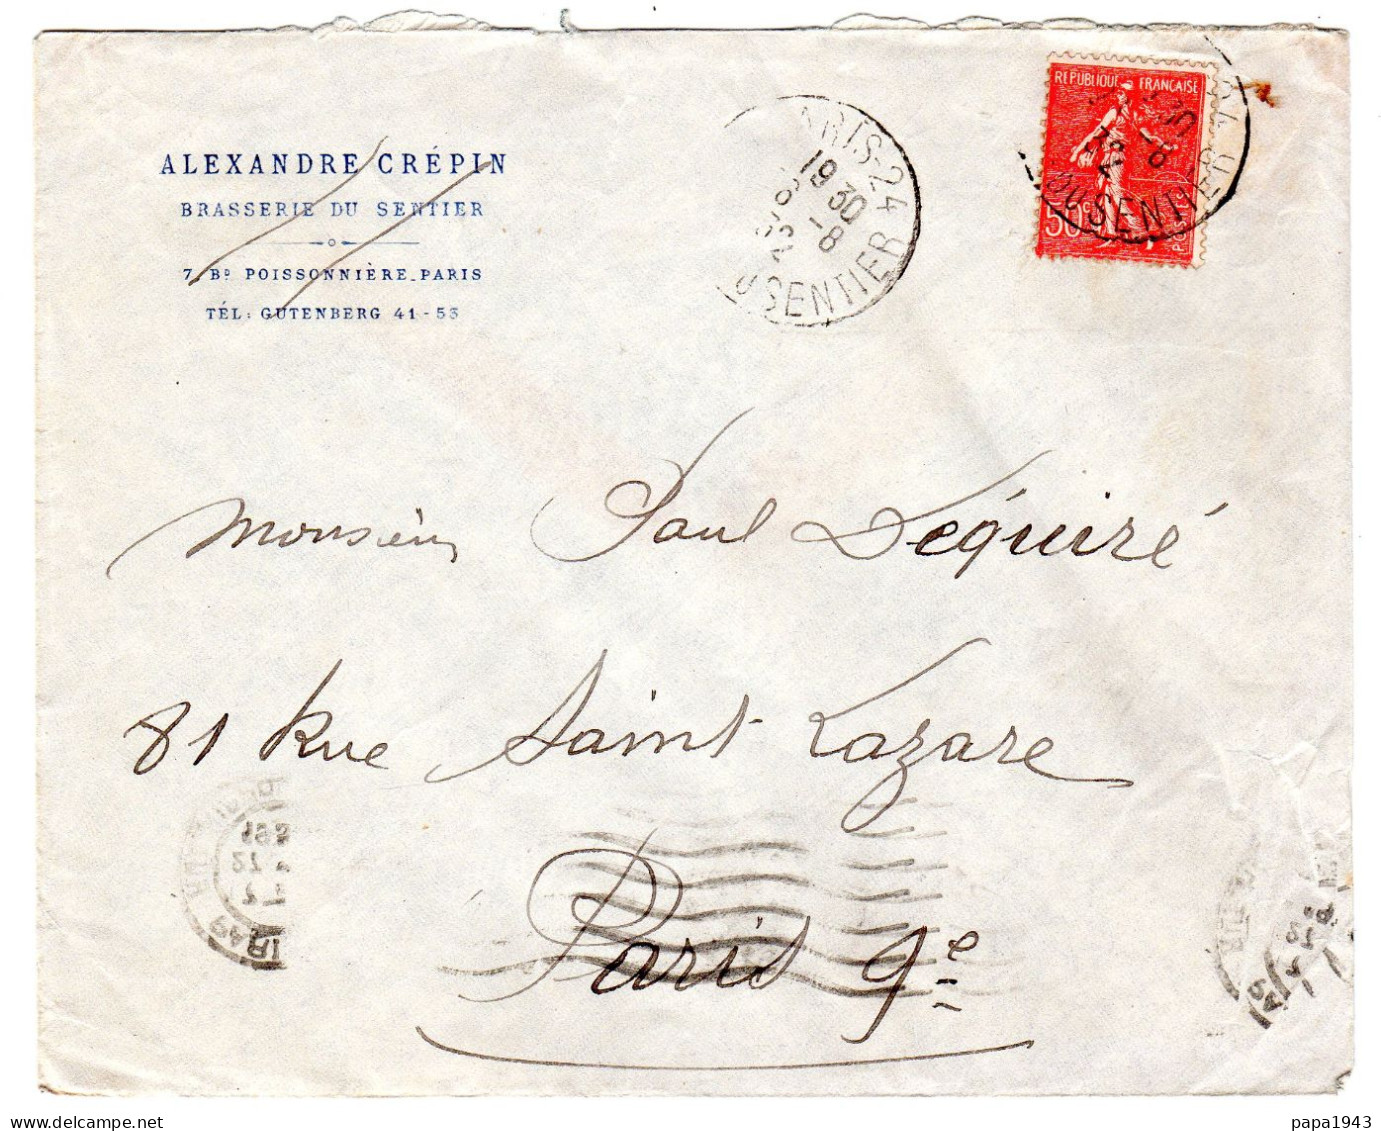 ALEXANDRE CRÉPIN
BRASSERIE DU SENTIER
7, Bᴅ POISSONNIÈRE_PARIS
TÉL: GUTENBERG 41-53
PARIS-24
19 30
-8
SENTIER
RÉPUBLIQUE FRANÇAISE
50c
POSTES
SENTIER
Monsieur Paul Déquiré
81 Rue Saint Lazare
Paris 9e
www.delcampe.net
papa1943